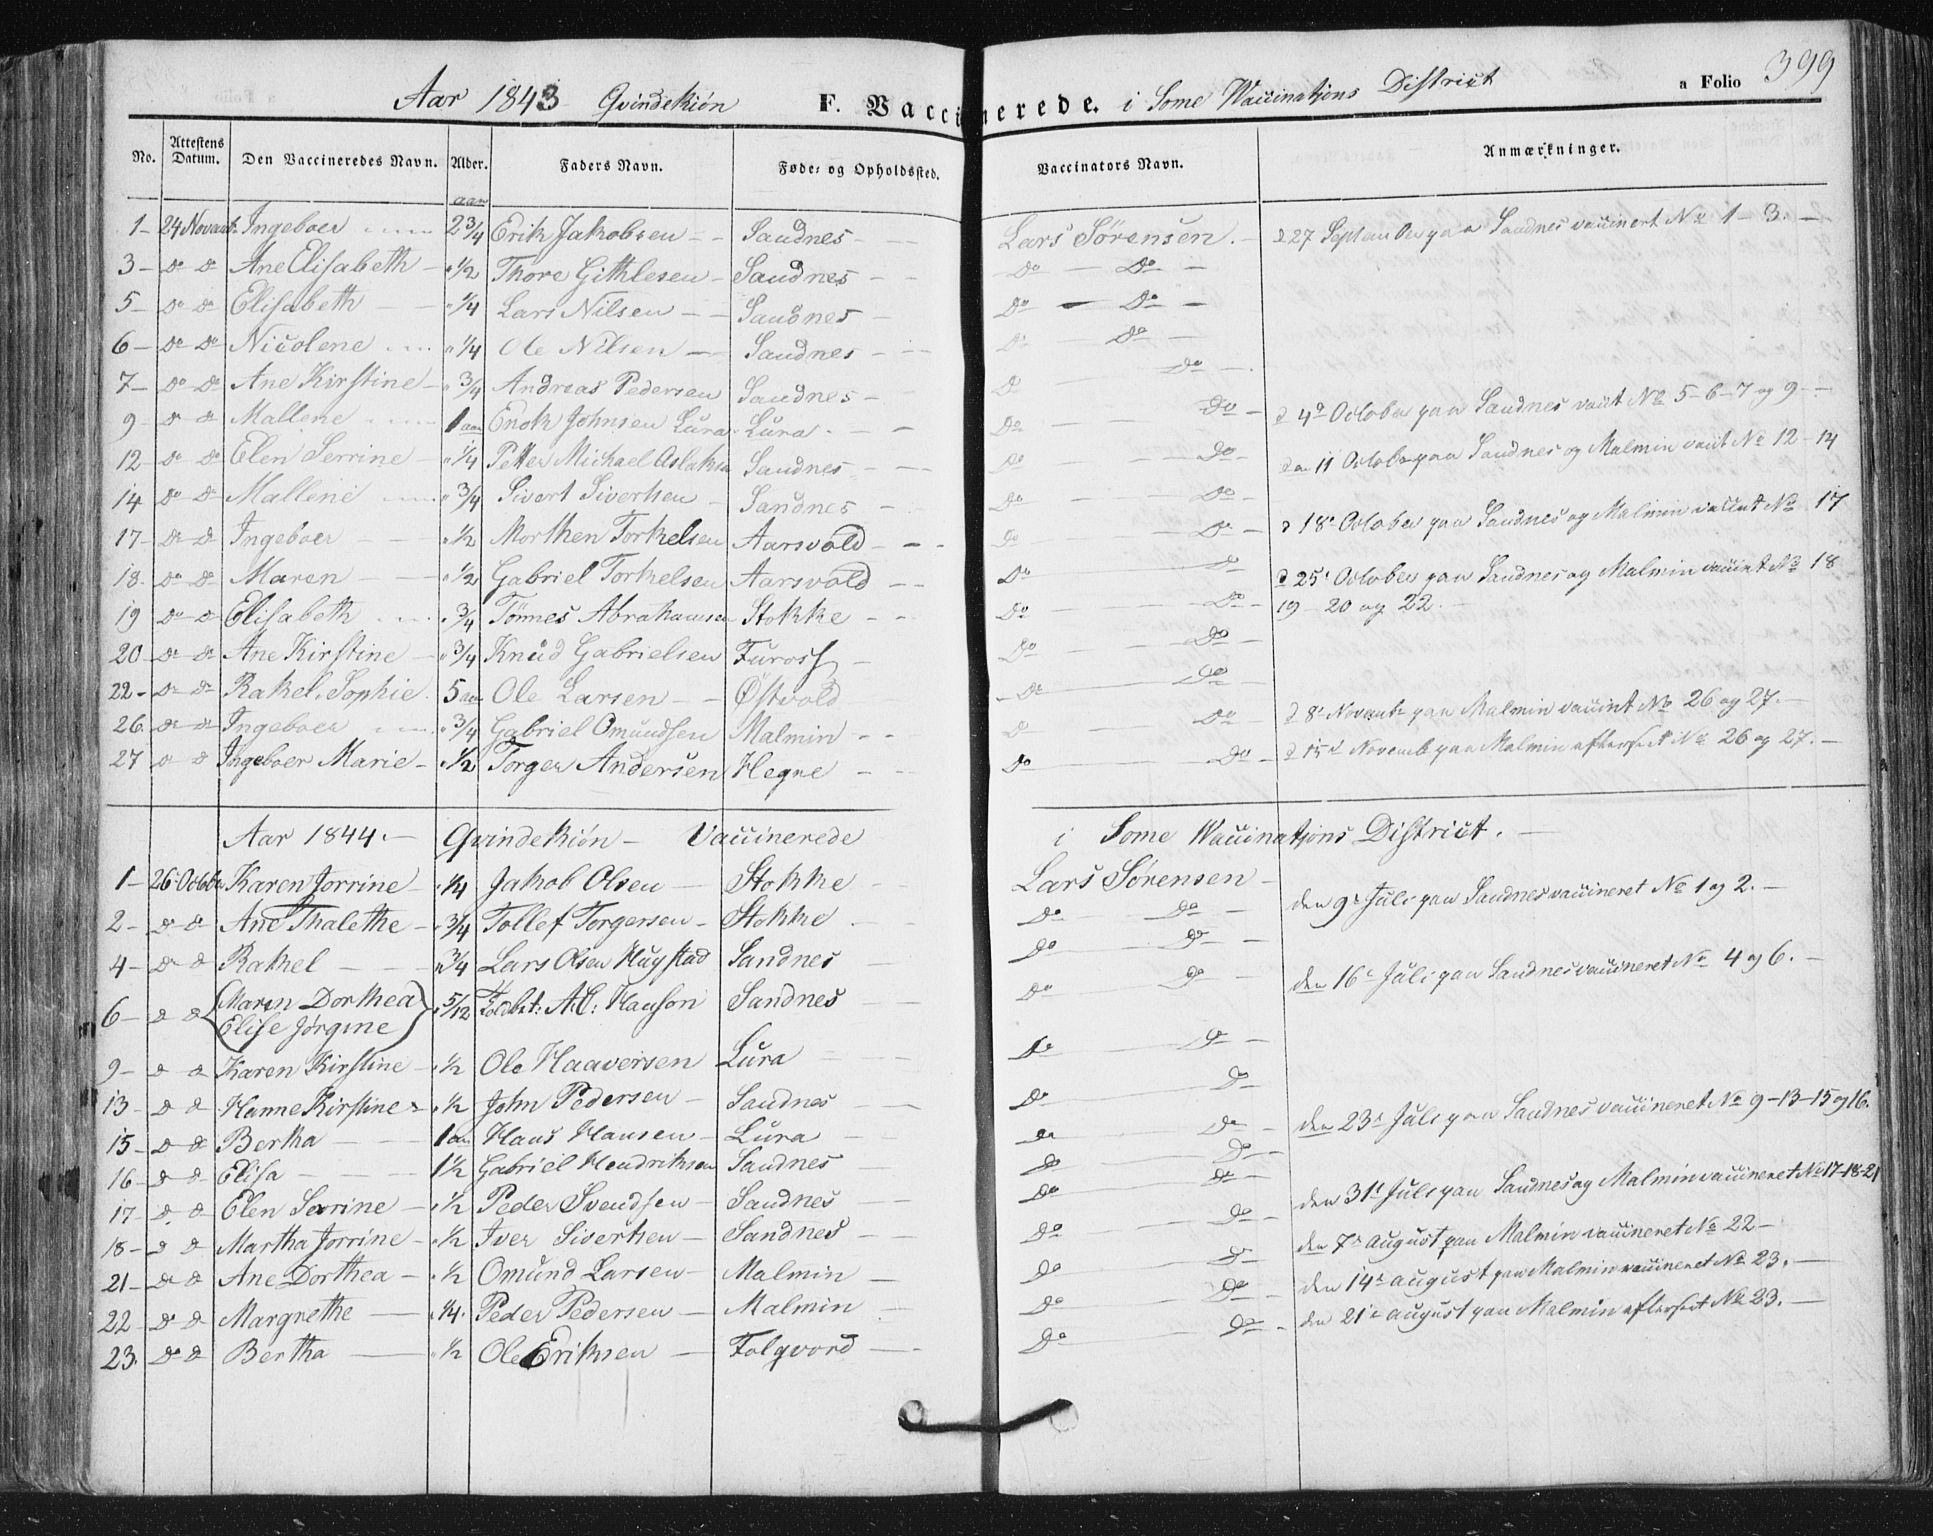 Aar 1843 Qvindekiön F. Vaccinerede. i Some Vaccinations District a Folio 399
No. Attestens Datum. Den Vaccineredes Navn. Alder. Faders Navn. Føde- og Opholdssted. Vaccinators Navn. Anmærkninger.
aar
1 – 24 Novemb. Ingeboer 2 3/4 Erik Jakobsen Sandnes Lars Sørensen. d 27 September paa Sandnes vaccinert No 1 – 3.
3 – Do Do Ane Elisabeth " 1/2 Thore Githlesen Sandnes Do Do
5 – Do Do Elisabeth " 1/4 Lars Nilsen Sandnes Do Do
6 – Do Do Nicolene " 1/4 Ole Nilsen Sandnes Do Do
7 – Do Do Ane Kirstine " 3/4 Andreas Pedersen Sandnes D Do
9 Do Do Mallene 1 aar Enok Johnsen Lura Lura Do Do d 4de October paa Sandnes vaccint No 5–6–7 og 9
12 Do Do Elen Serrine " 1/4 Petter Michael Aslaksen Sandnes Do Do den 11 October paa Sandnes og Malmin vaccint No 12–14
14 Do Do Mallene " 3/4 Sivert Sivertsen Sandnes Do Do
17 – Do Do Ingeboer " 1/2 Morthen Torkelsen Aarsvold Do Do d 18 October paa Sandnes og Malmin vaccint No 17
18. Do Do Maren " 1/2 Gabriel Torkelsen Aarsvold Do Do d 25 October paa Sandnes og Malmin vaccint No 18
19 Do Do Elisabeth " 3/4 Tönnes Abrahamsen Stokke Do Do 19 – 20 og 22.
20 – Do Do Ane Kirstine " 3/4 Knud Gabrielsen Do Do
22 – Do Do Rakel Sophie 5 aar Ole Larsen Østvold Do Do
26. Do Do Ingeboer " 3/4 Gabriel Omundsen Malmin D Do d 8 Novembr paa Malmin vaccint No 26 og 27.
27 D D Ingeboer Marie " 1/2 Torger Andersen Hegre Do Do d 15d Novemb paa Malmin efterseet No 26 og 27.
Aar 1844. Qvindekiön – Vaccinerede i Some Vaccinations District.
1 – 26 October Karen Jorrine " 1/4 Jakob Olsen Stokke Lars Sørensen
2 – Do Do Ane Thalethe " 3/4 Tollef Torgersen Stokke Do Do den 9 Juli paa Sandnes vaccineret No 1 og 2.
4 – Do D Rakel " 3/4 Lars Olsen Sandnes Do Do
6 – D D (Maren Dorthea Elise Jørgine) " 5/12 Toldbet: A: C: Hanson Sandnes Do Do den 16 Juli paa Sandnes vaccineret No 4 og 6.
9 – D D Karen Kirstine " 1/2 Ole Haaversen Lura Do D
13 – D D Hanne Kirstine " 1/2 John Pedersen Sandnes Do Do
15 – D D Bertha 1 aar Hans Hansen Lura Do Do den 23 Juli paa Sandnes vaccineret No 9–13–15 og 16.
16 – D D Elisa 1 1/2 Gabriel Hendriksen Sandnes Do Do
17 – D D Elen Serrine " 1/2 Peder Svendsen Sandnes Do Do den 31 Juli paa Sandnes og Malmin vaccineret No 17–18–21
18 – D D Martha Jorrine " 1/2 Iver Sivertsen Sandnes Do Do den 7 August paa Malmin vaccineret No 22
21 – Do D Ane Dorthea " 1/2 Omund Larsen Malmin Do D den 14 august paa Malmin vaccineret No 23.
22 Do D Margrethe " 1/4 Peder Pedersen Malmin Do Do den 21 august paa Malmin efterseet No 23.
23. Do D Bertha " 1/2 Ole Eriksen Folqvord Do Do